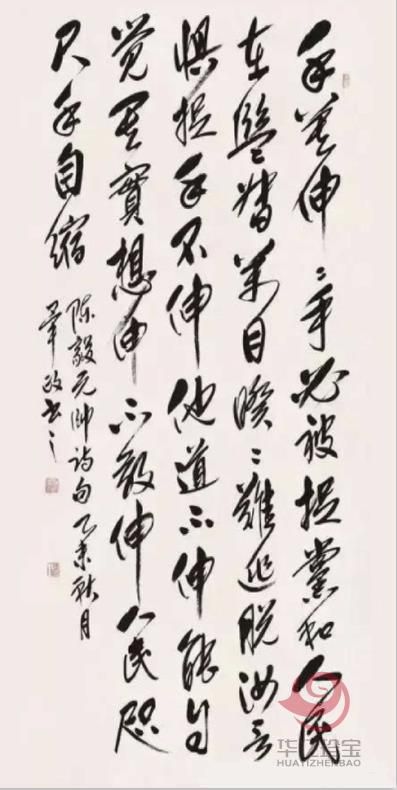 手莫伸〻手必被捉黨和人民
在監督萬目睽〻難逃脱汝言
惧捉手不伸他道不伸能自
觉其實想伸不敢伸人民咫
尺手自缩
陈毅元帅诗句乙未秋月
政书之
华亿珍宝
HUAYIZHENBAO